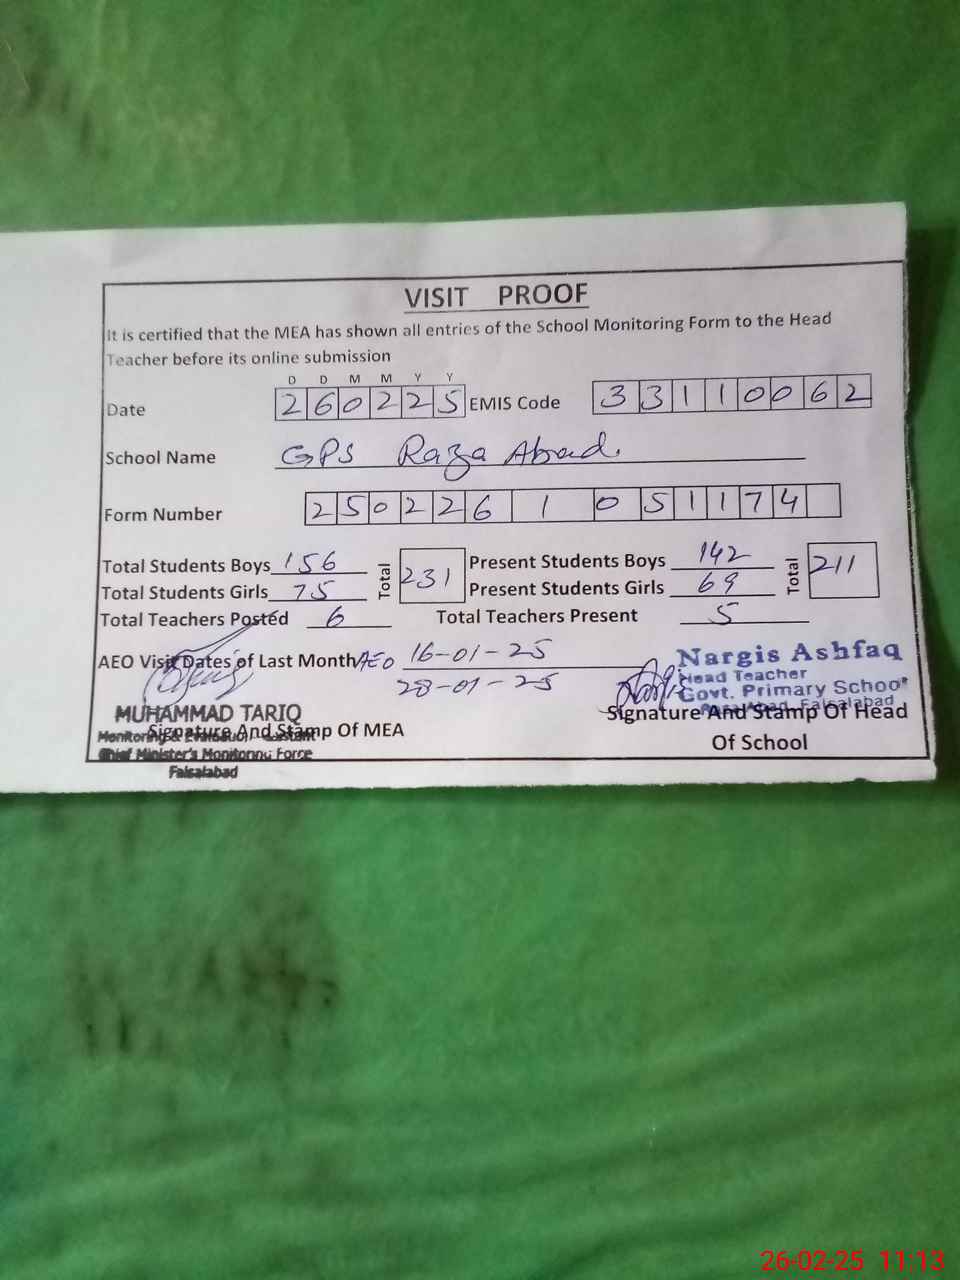 VISIT PROOF
It is certified that the MEA has shown all entries of the School Monitoring Form to the Head
Teacher before its online submission
D D M M Y Y
Date 2 6 0 2 2 5 EMIS Code 3 3 1 1 0 0 6 2
School Name GPS Raza Abad.
Form Number 2 5 0 2 2 6 1 0 5 1 1 7 4
Total Students Boys 156 Total 231 Present Students Boys 142 Total 211
Total Students Girls 75 Present Students Girls 69
Total Teachers Posted 6 Total Teachers Present 5
AEO Visit Dates of Last Month AEO 16-01-25
28-01-25
Nargis Ashfaq
Head Teacher
Govt. Primary School
Raza Abad, Faisalabad
MUHAMMAD TARIQ
Signature And Stamp Of MEA
Monitoring & Evaluation Assistant
Chief Minister's Monitoring Force
Faisalabad
Signature And Stamp Of Head
Of School
26-02-25 11:13